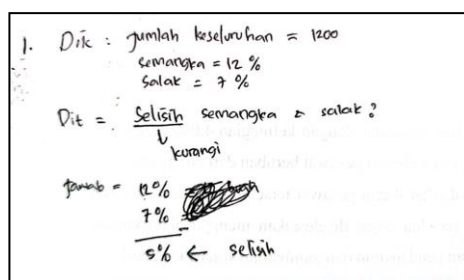 1. Dik : Jumlah keseluruhan = 1200
semangka = 12 %
salak = 7 %
Dit = Selisih semangka & salak ?
kurangi
Jawab = 12%
7%
5% ← selisih